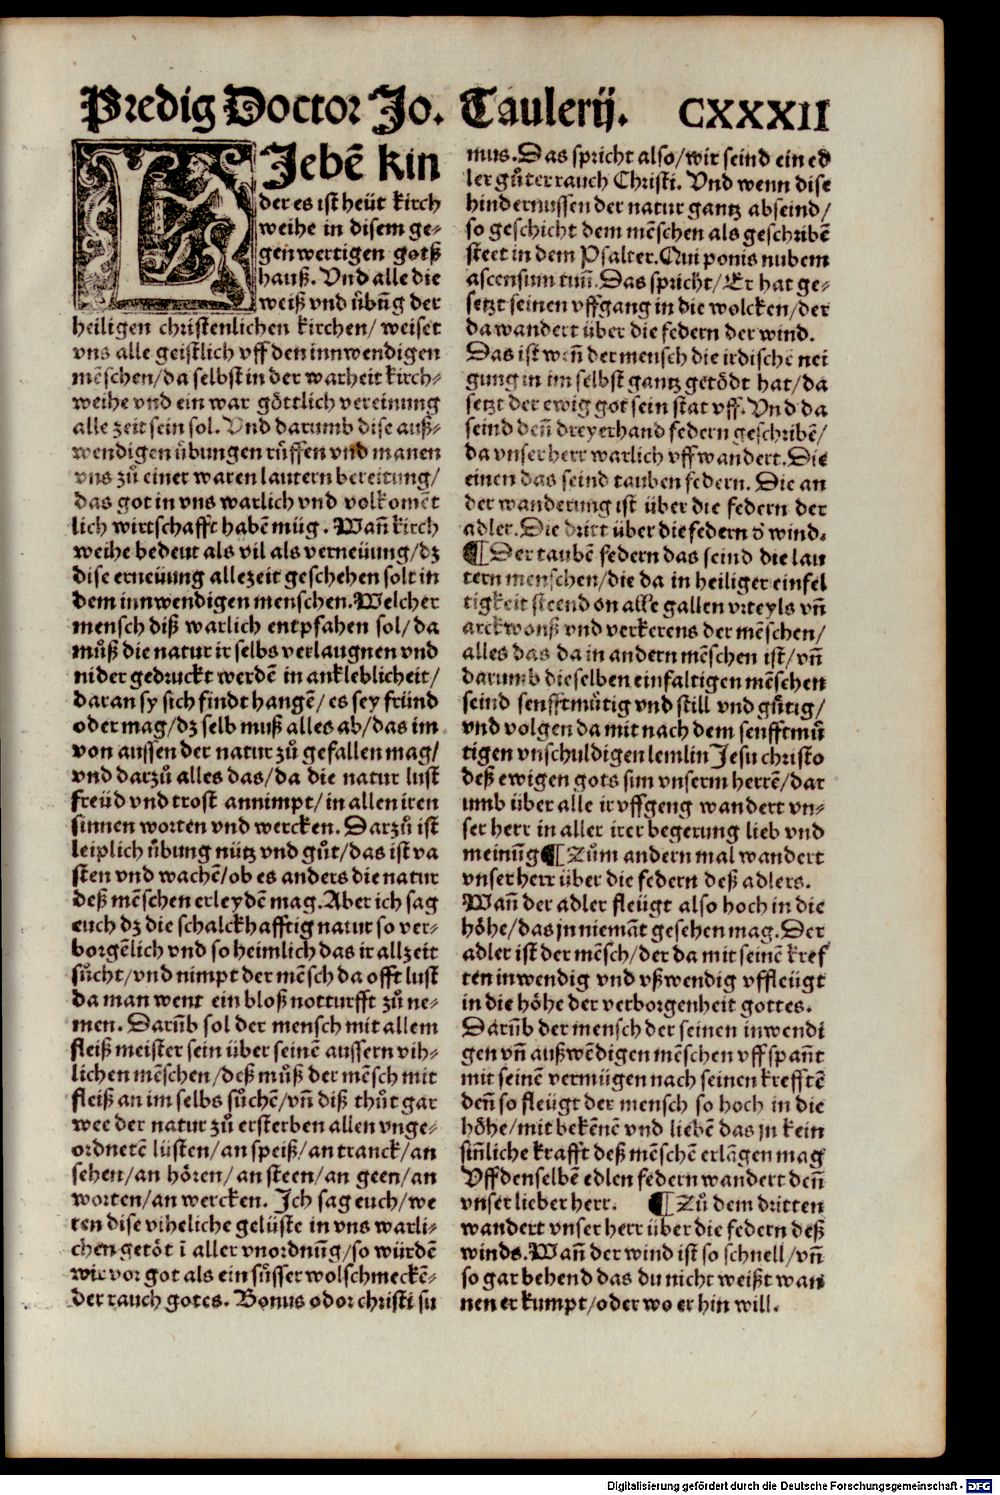 Predig Doctor Jo. Taulerij. CXXXII
LJebē kin
der es ist heüt kirch
weihe in disem ge⸗
genwertigen gotß
hauß. Vnd alle die
weiß vnd übūg der
heiligen christenlichen kirchen/ weiset
vns alle geistlich vff den innwendigen
mēschen/da selbst in der warheit kirch⸗
weihe vnd ein war göttlich vereinung
alle zeit sein sol. Vnd darumb dise auß⸗
wendigen übungen růffen vnd manen
vns zů einer waren lautern bereitung/
das got in vns warlich vnd volkomēt
lich wirtschafft habē müg. Wañ kirch
weihe bedeut als vil als verneüung/dz
dise erneüung allezeit geschehen solt in
dem innwendigen menschen. Welcher
mensch diß warlich entpfahen sol/da
můß die natur ir selbs verlaugnen vnd
nider gedruckt werdē in ankleblicheit/
daran sy sich findt hangē/es sey fründ
oder mag/dz selb muß alles ab/das im
von aussen der natur zů gefallen mag/
vnd darzů alles das/da die natur lust
freüd vnd trost annimpt/in allen iren
sinnen worten vnd wercken. Darzů ist
leiplich übung nütz vnd gůt/das ist va
sten vnd wachē/ob es anders die natur
deß mēschen erleydē mag. Aber ich sag
euch dz die schalckhafftig natur so ver⸗
borgēlich vnd so heimlich das ir allzeit
sůcht/vnd nimpt der mēsch da offt lust
da man went ein bloß notturfft zů ne⸗
men. Darūb sol der mensch mit allem
fleiß meister sein über seinē aussern vih⸗
lichen mēschen/deß můß der mēsch mit
fleiß an im selbs sůchē/vñ diß thůt gar
wee der natur zů ersterben allen vnge⸗
ordnetē lüsten/an speiß/an tranck/an
sehen/an hören/an steen/an geen/an
worten/an wercken. Ich sag euch/we
ten dise viheliche gelüste in vns warli⸗
chen getöt ī aller vnordnūg/so würdē
wir vor got als ein sůsser wolschmeckē⸗
der rauch gotes. Bonus odor christi su
mus. Das spricht also/wir seind ein ed
ler gůter rauch Christi. Vnd wenn dise
hindernussen der natur gantz abseind/
so geschicht dem mēschen als geschribē
steet in dem Psalter. Qui ponis nubem
ascensum tuū. Das spricht/Er hat ge⸗
setzt seinen vffgang in die wolcken/der
da wandert über die federn der wind.
Das ist weñ der mensch die irdische nei
gung in im selbst gantz getödt hat/da
setzt der ewig got sein stat vff. Vnd da
seind deñ dreyerhand federn geschribē/
da vnser herr warlich vff wandert. Die
einen das seind tauben federn. Die an
der wanderung ist über die federn der
adler. Die dritt über die federn d̄ wind.
¶ Der taubē federn das seind die lau
tern menschen/die da in heiliger einfel
tigkeit steend on alle gallen vrteyls vñ
arckwonß vnd verkerens der mēschen/
alles das da in andern mēschen ist/vñ
darumb dieselben einfaltigen mēschen
seind senfftmůtig vnd still vnd gůtig/
vnd volgen da mit nach dem senfftmů
tigen vnschuldigen lemlin Jesu christo
deß ewigen gots sun vnserm herrē/dar
umb über alle ir vffgeng wandert vn⸗
ser herr in aller irer begerung lieb vnd
meinūg ¶ Zům andern mal wandert
vnser herr über die federn deß adlers.
Wañ der adler fleügt also hoch in die
höhe/das jn niemāt gesehen mag. Der
adler ist der mēsch/der da mit seinē kref
ten inwendig vnd vßwendig vffleügt
in die höhe der verborgenheit gottes.
Darūb der mensch der seinen inwendi
gen vñ außwēdigen mēschen vff spañt
mit seinē vermügen nach seinen krefftē
deñ so fleügt der mensch so hoch in die
höhe/mit bekēnē vnd liebē das jn kein
siñliche krafft deß mēschē erlāgen mag
Vff denselbē edlen federn wandert deñ
vnser lieber herr. ¶ Zů dem dritten
wandert vnser herr über die federn deß
winds. Wañ der wind ist so schnell/vñ
so gar behend das du nicht weißt wan
nen er kumpt/oder wo er hin will.
Digitalisierung gefördert durch die Deutsche Forschungsgemeinschaft - DFG